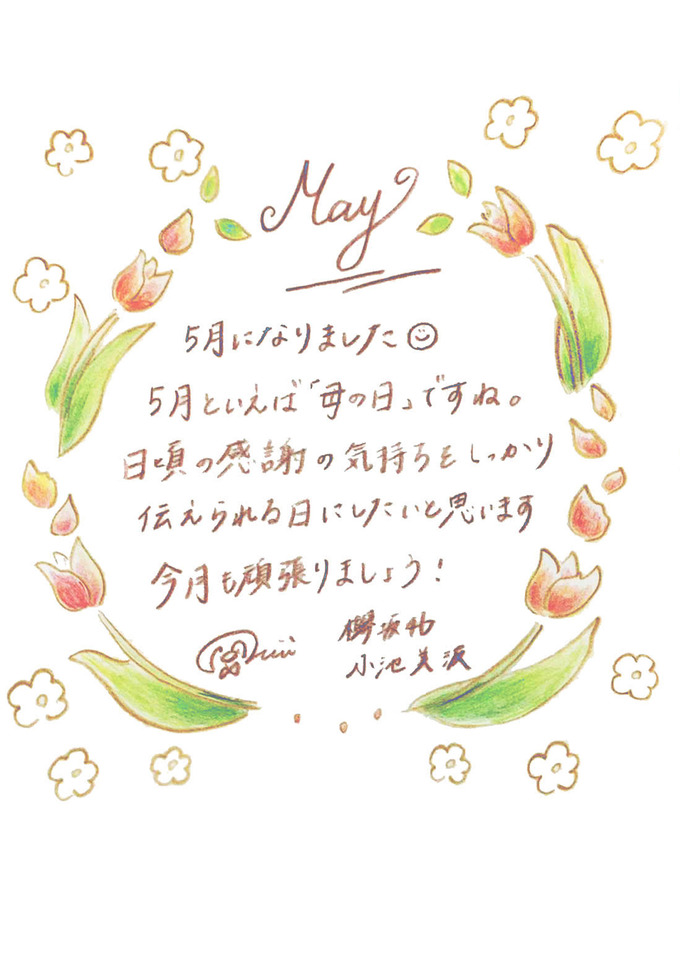 May
5月になりました
5月といえば「母の日」ですね。
日頃の感謝の気持ちをしっかり
伝えられる日にしたいと思います
今月も頑張りましょう!
欅坂46
小池美波